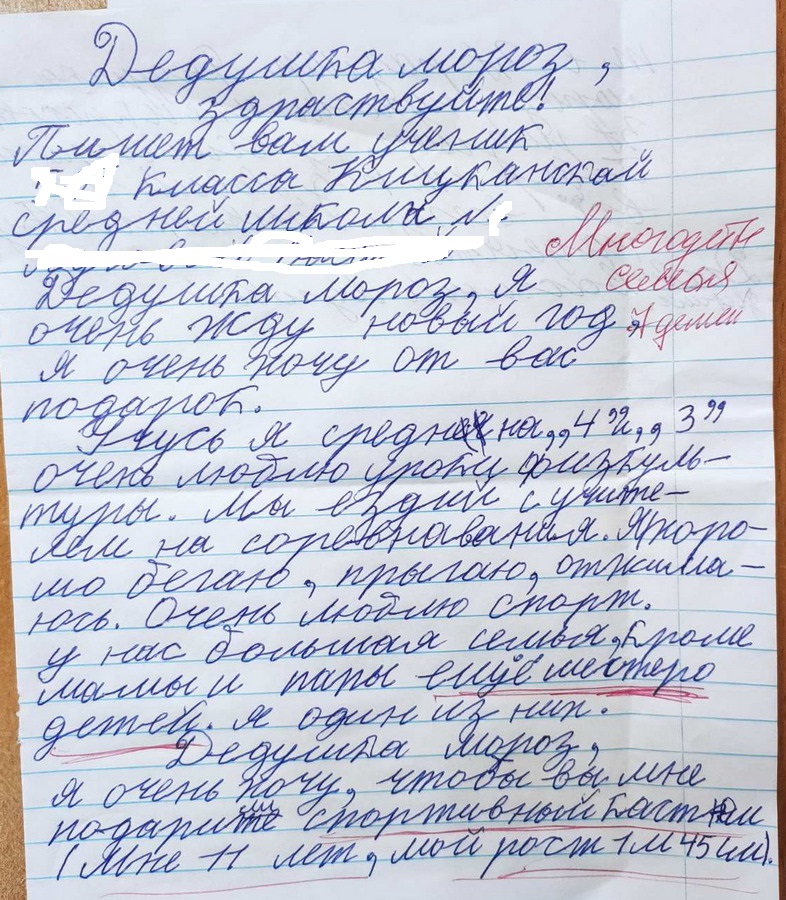 Дедушка мороз,
здраствуйте!
Пишет вам ученик
класса Кицканской
средней школы №
Дедушка мороз, я
Многодетн
семья
очень жду новый год,
7 детей
я очень хочу от вас
подарок.
Учусь я средне на „4” и „3”
очень люблю уроки физкуль-
туры. Мы ездий с учите-
лем на соревнавания. Я хоро-
шо бегаю, прыгаю, отжима-
юсь. Очень люблю спорт.
у нас большая семья, кроме
мамы и папы ещё шестеро
детей. я один из них.
Дедушка мороз,
я очень хочу, чтобы вы мне
подарили спортивный кастюм
(Мне 11 лет, мой рост 1 м 45 см).